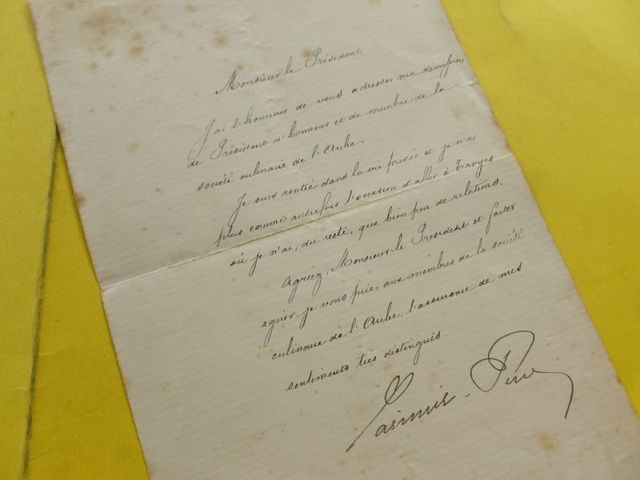 Monsieur le Président,
J'ai l'honneur de vous adresser ma démission
de Président d'honneur et de membre de la
société culinaire de l'Aube.
Je suis rentré dans la vie privée et je n'ai
plus comme autrefois l'occasion d'aller à Troyes
où je n'ai, du reste, que bien peu de relations.
Agréez, Monsieur le Président et faites
agréer, je vous prie, aux membres de la société
culinaire de l'Aube, l'assurance de mes
sentiments très distingués.
Casimir-Perier